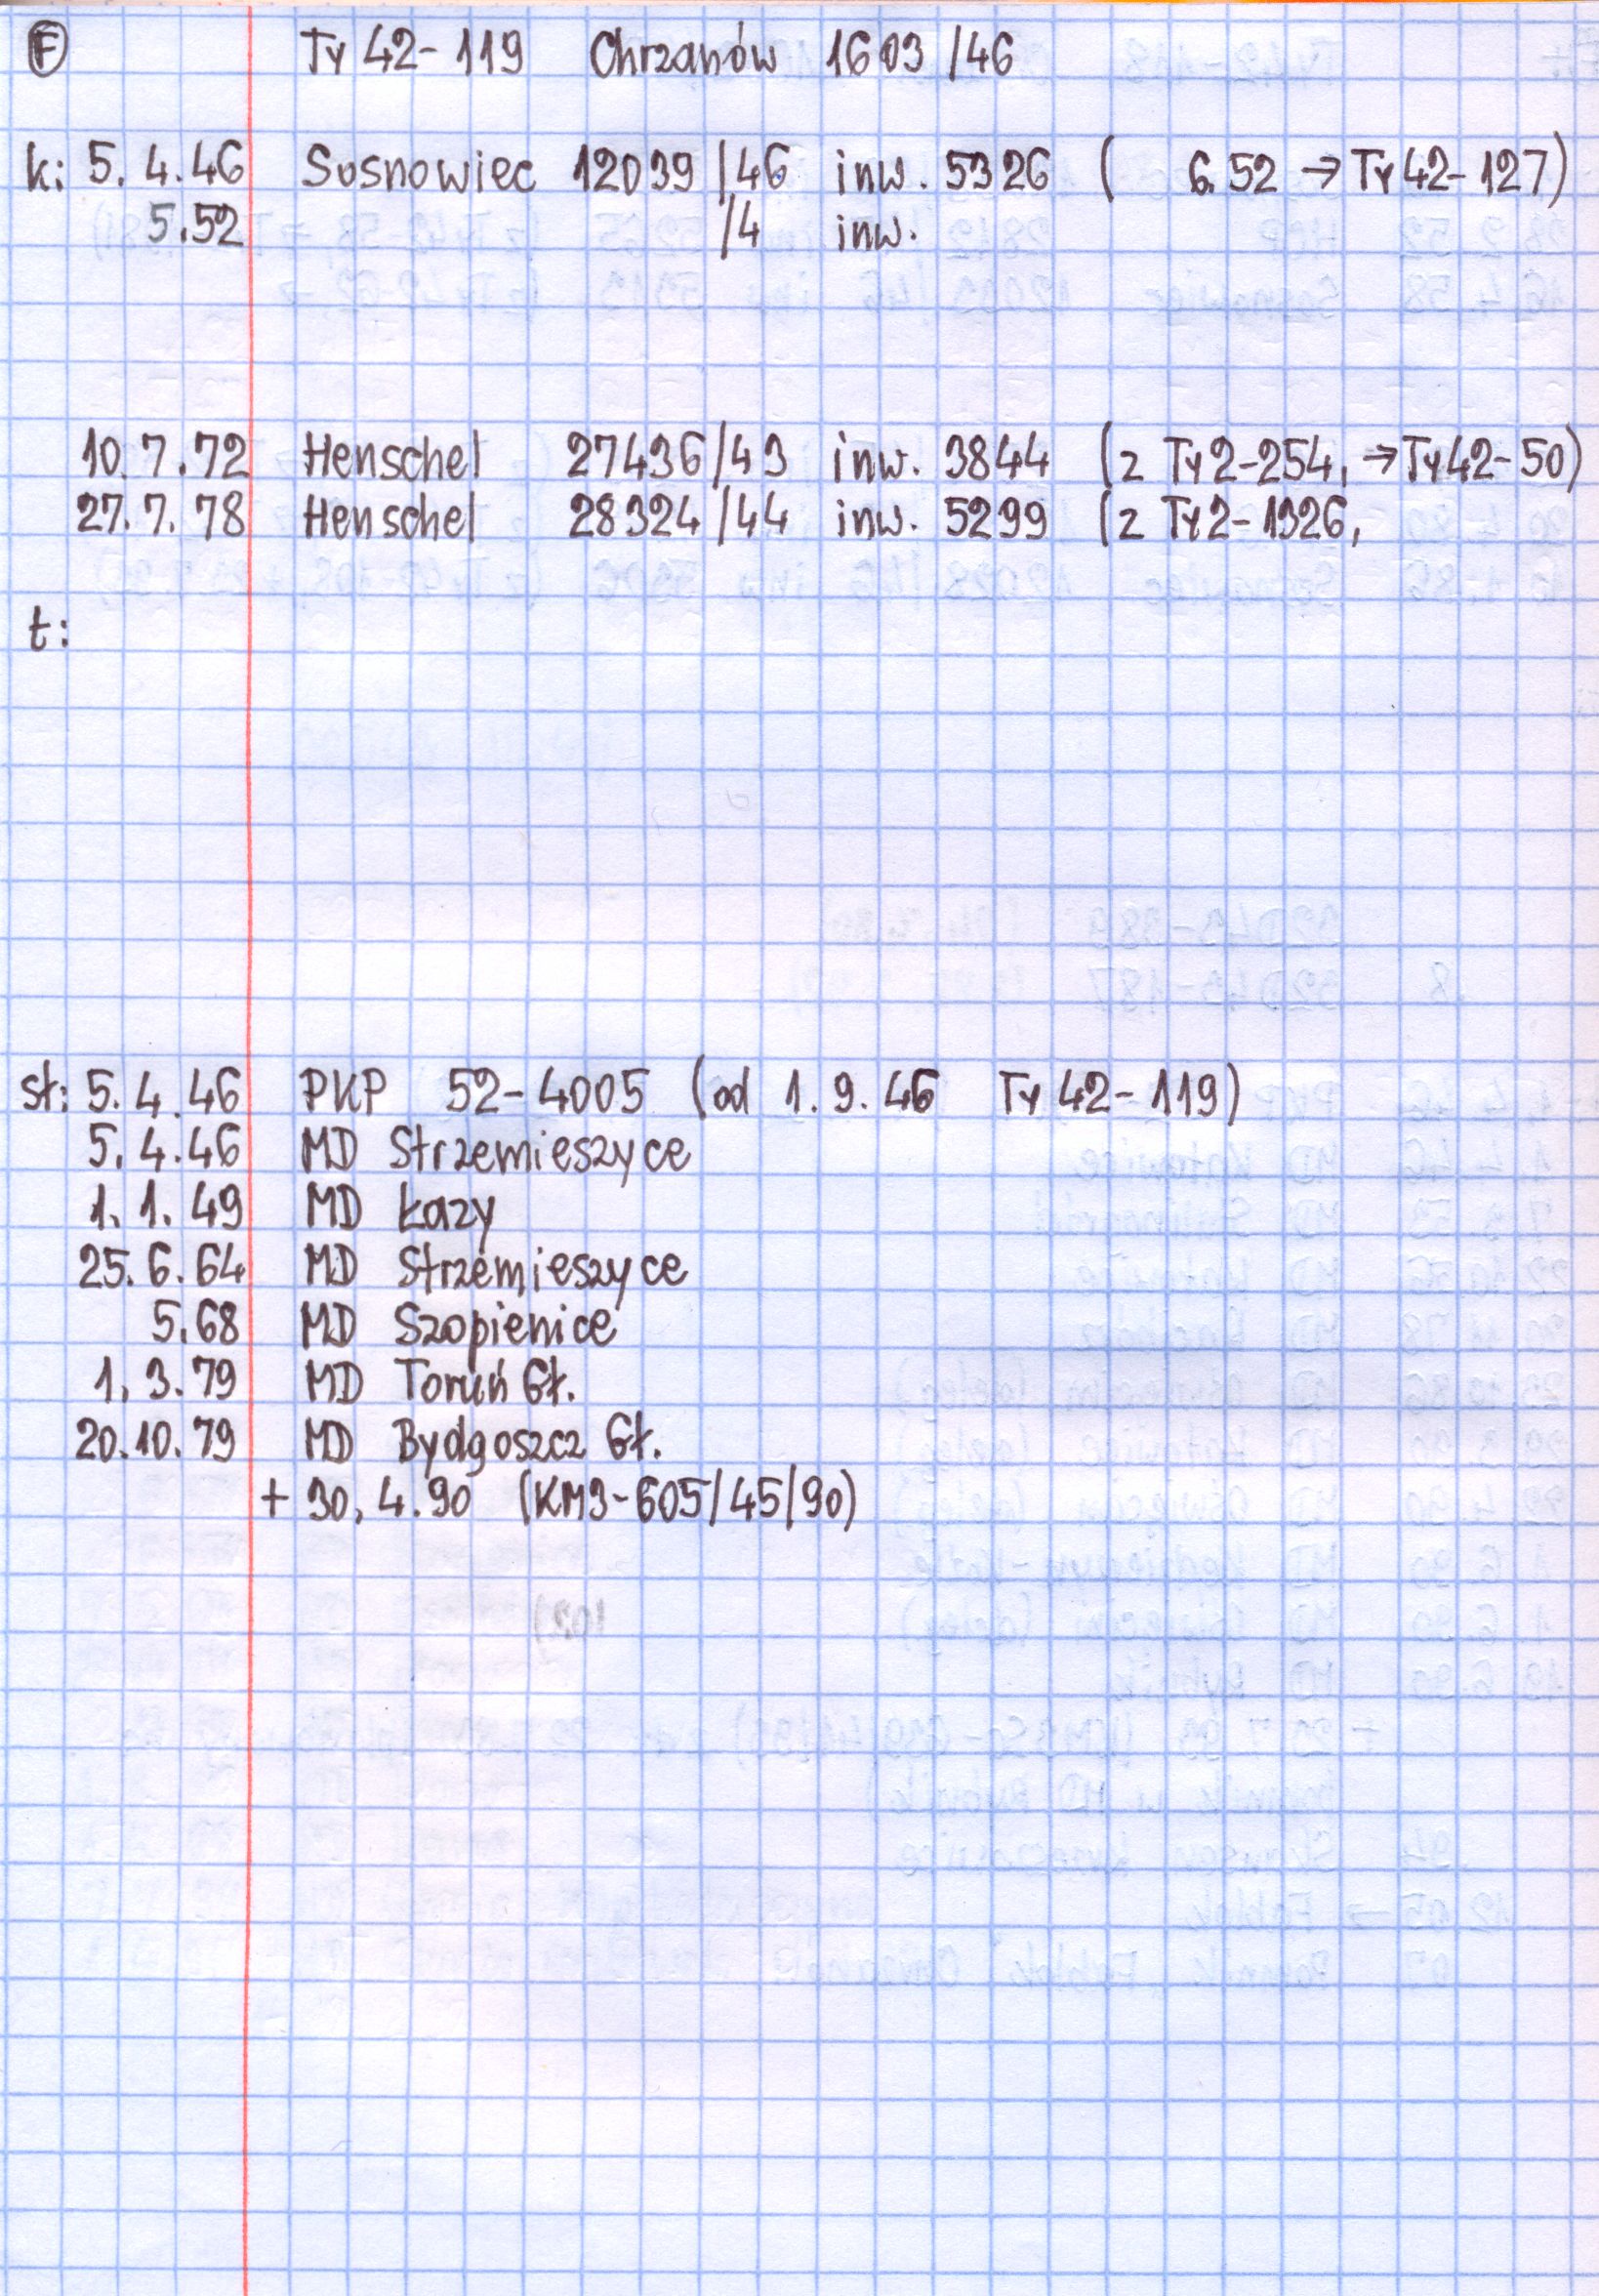 F Ty 42-119 Chrzanów 1603/46
k: 5.4.46 Sosnowiec 12039/46 inw. 5326 ( 6.52 → Ty 42-127)
5.52 /4 inw.
10.7.72 Henschel 27436/43 inw. 3844 (z Ty2-254, → Ty42-50)
27.7.78 Henschel 28324/44 inw. 5299 (z Ty2-1326,
t:
st: 5.4.46 PKP 52-4005 (od 1.9.46 Ty 42-119)
5.4.46 MD Strzemieszyce
1.1.49 MD Łazy
25.6.64 MD Strzemieszyce
5.68 MD Szopienice
1.3.79 MD Toruń Gł.
20.10.79 MD Bydgoszcz Gł.
+ 30.4.90 (KM3-605/45/90)